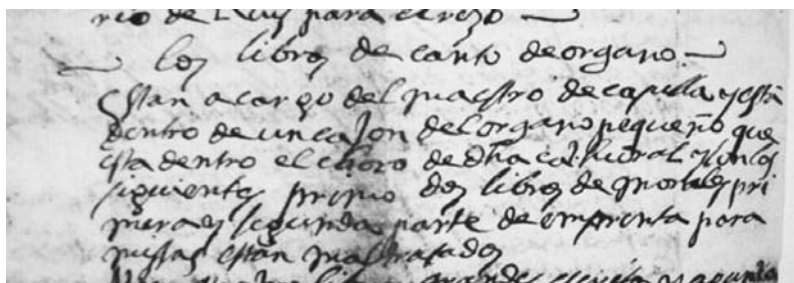 rio de Ruis para el rezo
los libros de canto de organo
Estan a cargo del maestro de capilla y esta
dentro de un caxon del organo pequeño que
esta dentro el choro de dha cathedral y son los
siguientes primo dos libros de morales pri
mera y segunda parte de emprenta para
misas estan maltratados
libros grandes escrito y apunta